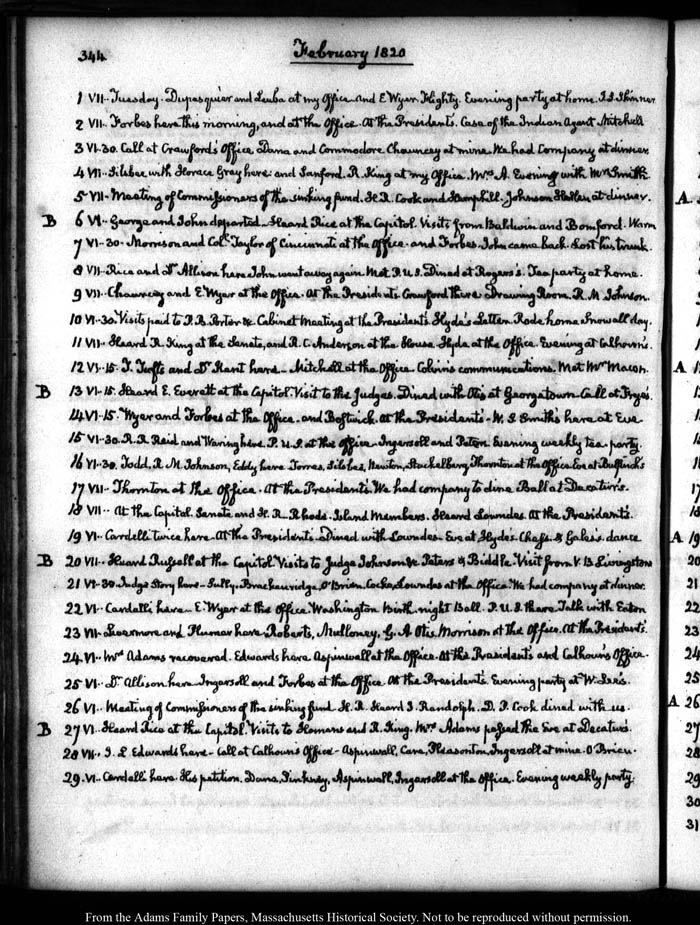 344
February 1820
1 VII. Tuesday. Dupasquier and Leuba at my Office and E Wyer. Flighty. Evening party at home. J.S. Skinner
2 VII. Forbes here this morning, and at the Office. At the Presidents. Case of the Indian Agent Mitchell
3 VI-30. Call at Crawford's Office. Dana and Commodore Chauncey at mine. We had Company at dinner.
4 VII. Silsbee with Horace Gray here: and Sanford. R. King at my Office. Mrs A. Evening with Mrs Smith.
5 VII. Meeting of Commissioners of the sinking fund. H.R. Cook and Hemphill. Johnson at dinner.
B 6 VI. George and John departed. Heard Rice at the Capitol. Visits from Baldwin and Bomford. Warm
7 VI.30. Morrison and Coll. Taylor of Cincinnati at the Office. and Forbes. John came back. Lost his trunk.
8 VII. Rice and Dr Allison here. John went away again. Met P.U.S. Dined at Rogers's. Tea party at home.
9 VII. Chauncey and E Wyer at the Office. At the Presidents. Crawford there. Drawing Room. R. M Johnson.
10 VI-30. Visits paid to P.B. Porter &c. Cabinet Meeting at the Presidents. Hyde's Letter. Rode home. Snow all day.
11 VII. Heard R. King at the Senate, and R. C. Anderson at the House. Hyde at the Office. Evening at Calhoun's.
12 VI-15. T. Tufts and Dr Hunt here. Mitchell at the Office. Colvin's communications. Met Mr Macon.
B 13 VI-15. Heard E. Everett at the Capitol. Visit to the Judges. Dined with Otis at Georgetown. Call at Frye's.
14 VI-15. Wyer and Forbes at the Office. and Bostwick. At the Presidents. W. S Smiths here at Eve
15 VI-30. R.R Reid and Waring here. P.U.S. at the office. Ingersoll and Peters. Evening weekly tea party.
16 VI-30. Todd, R. M Johnson, Eddy here. Torres, Silsbee, Newton, Stackelberg, Thornton at the Office. Eve at Bulfinch's
17 VII. Thornton at the Office. At the Presidents. We had company to dine. Ball at Decatur's.
18 VII. At the Capitol. Senate and H. R. Rhode-Island Members. Heard Lowndes. At the President's.
19 VI. Cardelli twice here. At the Presidents. Dined with Lowndes. Eve at Hyde's. Chess & Gales's dance
B 20 VII. Heard Russell at the Capitol. Visits to Judge Johnson &c Peters & Biddle. Visit from V. B Livingston
21 VI-30. Judge Story here. Sully, Brackenridge, O'Brien, Cocke, Lowndes at the Office. We had company at dinner.
22 VI. Cardelli here. E. Wyer at the Office. Washington Birth-night Ball. P.U.S there. Talk with Eaton
23 VII. Livermore and Plumer here. Roberts, Mullowny, G. A Otis, Morrison at the Office. At the Presidents.
24 VI. Mrs Adams recovered. Edwards here. Aspinwall at the Office. At the Presidents and Calhoun's Office.
25 VI. Dr Allison here. Ingersoll and Forbes at the Office. At the Presidents. Evening party at W. Lee's.
26 VI. Meeting of Commissioners of the sinking fund. H. R. Heard J. Randolph. D. P. Cook dined with us.
B 27 VI. Heard Rice at the Capitol. Visits to Homans and R. King. Mrs Adams passed the Eve at Decatur's.
28 VII. J. L Edwards here. Call at Calhoun's Office. Aspinwall, Care, Pleasonton, Ingersoll at mine. O Brien.
29. VI. Cardelli here. His petition. Dana, Pinkney, Aspinwall, Ingersoll at the Office. Evening weekly party.
A
A
A 19
20
21
22
23
24
25
A 26
27
28
29
30
31
From the Adams Family Papers, Massachusetts Historical Society. Not to be reproduced without permission.